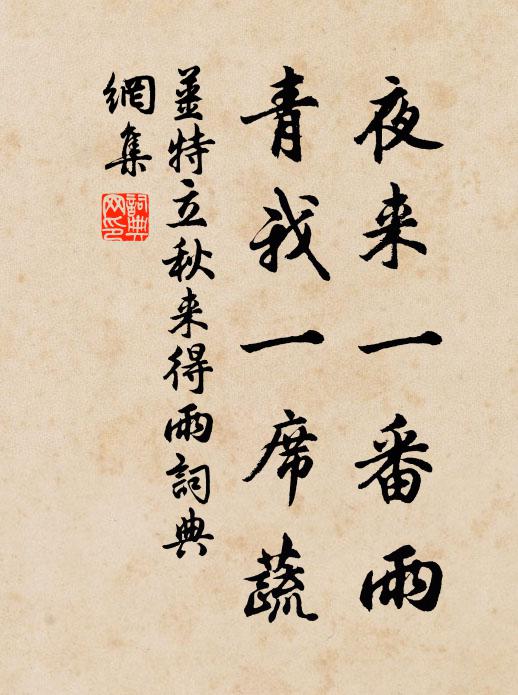 夜来一番雨
青我一席蔬
姜特立秋来得雨詞典
網集
詞典网印